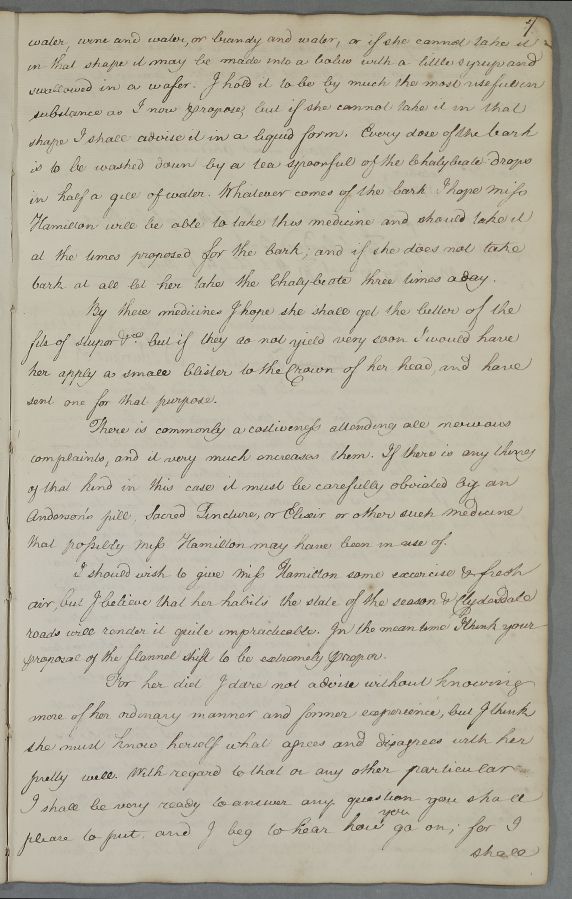 7
water, wine and water, or brandy and water, or if she cannot take it
in that shape it may be made into a bolus with a little syrup and
swallowed in a wafer. I hold it to be by much the most usefull in
substance as I now propose, but if she cannot take it in that
shape I shall advise it in a liquid form. Every dose of the bark
is to be washed down by a tea spoonful of the Chalybeate drops
in half a gill of water. Whatever comes of the bark I hope Miss
Hamilton will be able to take this medicine and should take it
at the times proposed for the bark; and if she does not take
bark at all let her take the Chalybeate three times a day.
By these medicines I hope she shall get the better of the
fits of stupor &ca. but if they do not yield very soon I would have
her apply a small blister to the Crown of her head, and have
sent one for that purpose.
There is commonly a costiveness attending all nervous
complaints, and it very much encreases them. If there is any thing
of that kind in this case it must be carefully obviated by an
Anderson's pill, Sacred Tincture, or Elixir or other such medicine
that possibly Miss Hamilton may have been in use of.
I should wish to give Miss Hamilton some excercise & fresh
air, but I believe that her habits the state of the season & Clydesdale
roads will render it quite impracticable. In the mean time I think your
proposal of the flannel shift to be extremely proper.
For her diet I dare not advise without knowing
more of her ordinary manner and former experience, but I think
she must know herself what agrees and disagrees with her
pretty well. With regard to that or any other particular
I shall be very ready to answer any question you shall
please to put, and I beg to hear how you go on; for I
shall